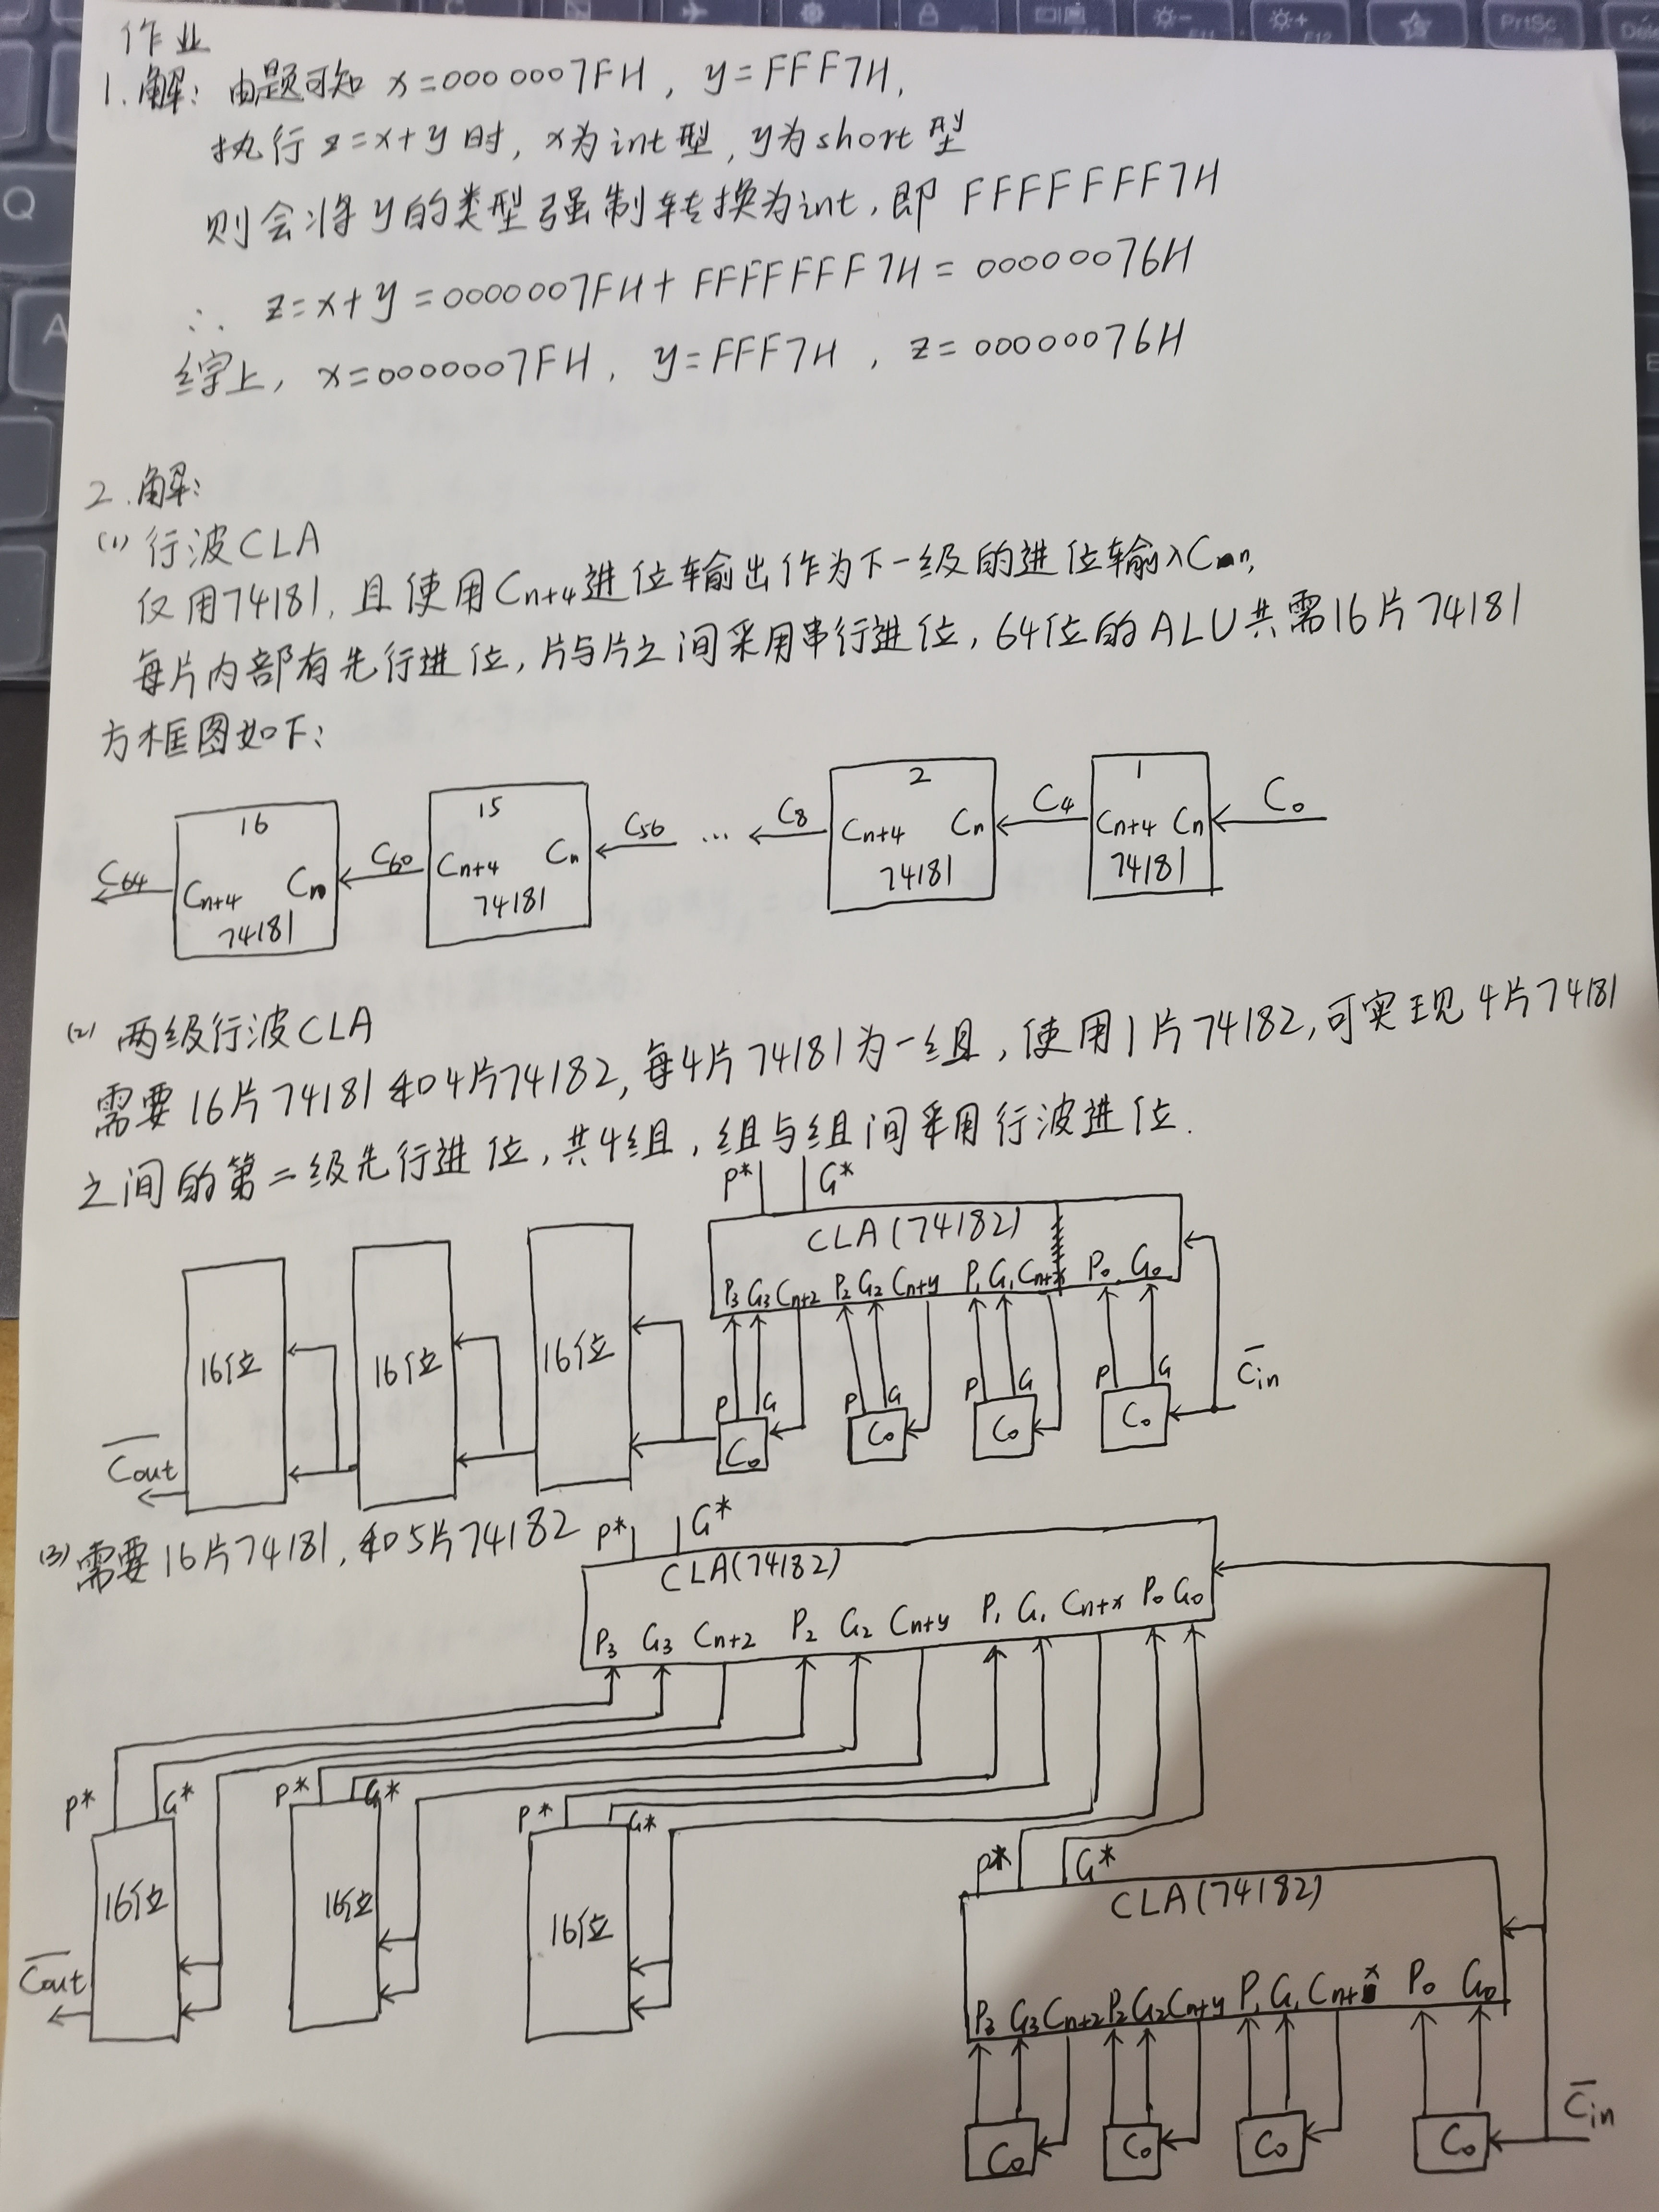 作业
1.解：由题可知 x=0000007FH，y=FFF7H，
执行 z=x+y 时，x为int型，y为short型
则会将y的类型强制转换为int，即 FFFFFFF7H
∴ z=x+y=0000007FH+FFFFFFF7H=00000076H
综上，x=0000007FH，y=FFF7H，z=00000076H
2.解：
(1) 行波CLA
仅用74181，且使用Cn+4进位输出作为下一级的进位输入Cn，
每片内部有先行进位，片与片之间采用串行进位，64位的ALU共需16片74181
方框图如下：
C64 16 Cn+4 Cn 74181 C60 15 Cn+4 Cn 74181 C56 … C8 2 Cn+4 Cn 74181 C4 1 Cn+4 Cn 74181 C0
(2) 两级行波CLA
需要16片74181和4片74182，每4片74181为一组，使用1片74182，可实现4片74181
之间的第二级先行进位，共4组，组与组间采用行波进位.
P* G*
CLA(74182)
P3 G3 Cn+2 P2 G2 Cn+y P1 G1 Cn+x P0 G0
16位 16位 16位
P G P G P G P G
C0 C0 C0 C0 C̅in
C̅out
(3) 需要16片74181，和5片74182
P* G*
CLA(74182)
P3 G3 Cn+2 P2 G2 Cn+y P1 G1 Cn+x P0 G0
P* G* P* G* P* G* P* G*
16位 16位 16位
CLA(74182)
P3 G3 Cn+2 P2 G2 Cn+y P1 G1 Cn+x P0 G0
C̅out
C0 C0 C0 C0 C̅in